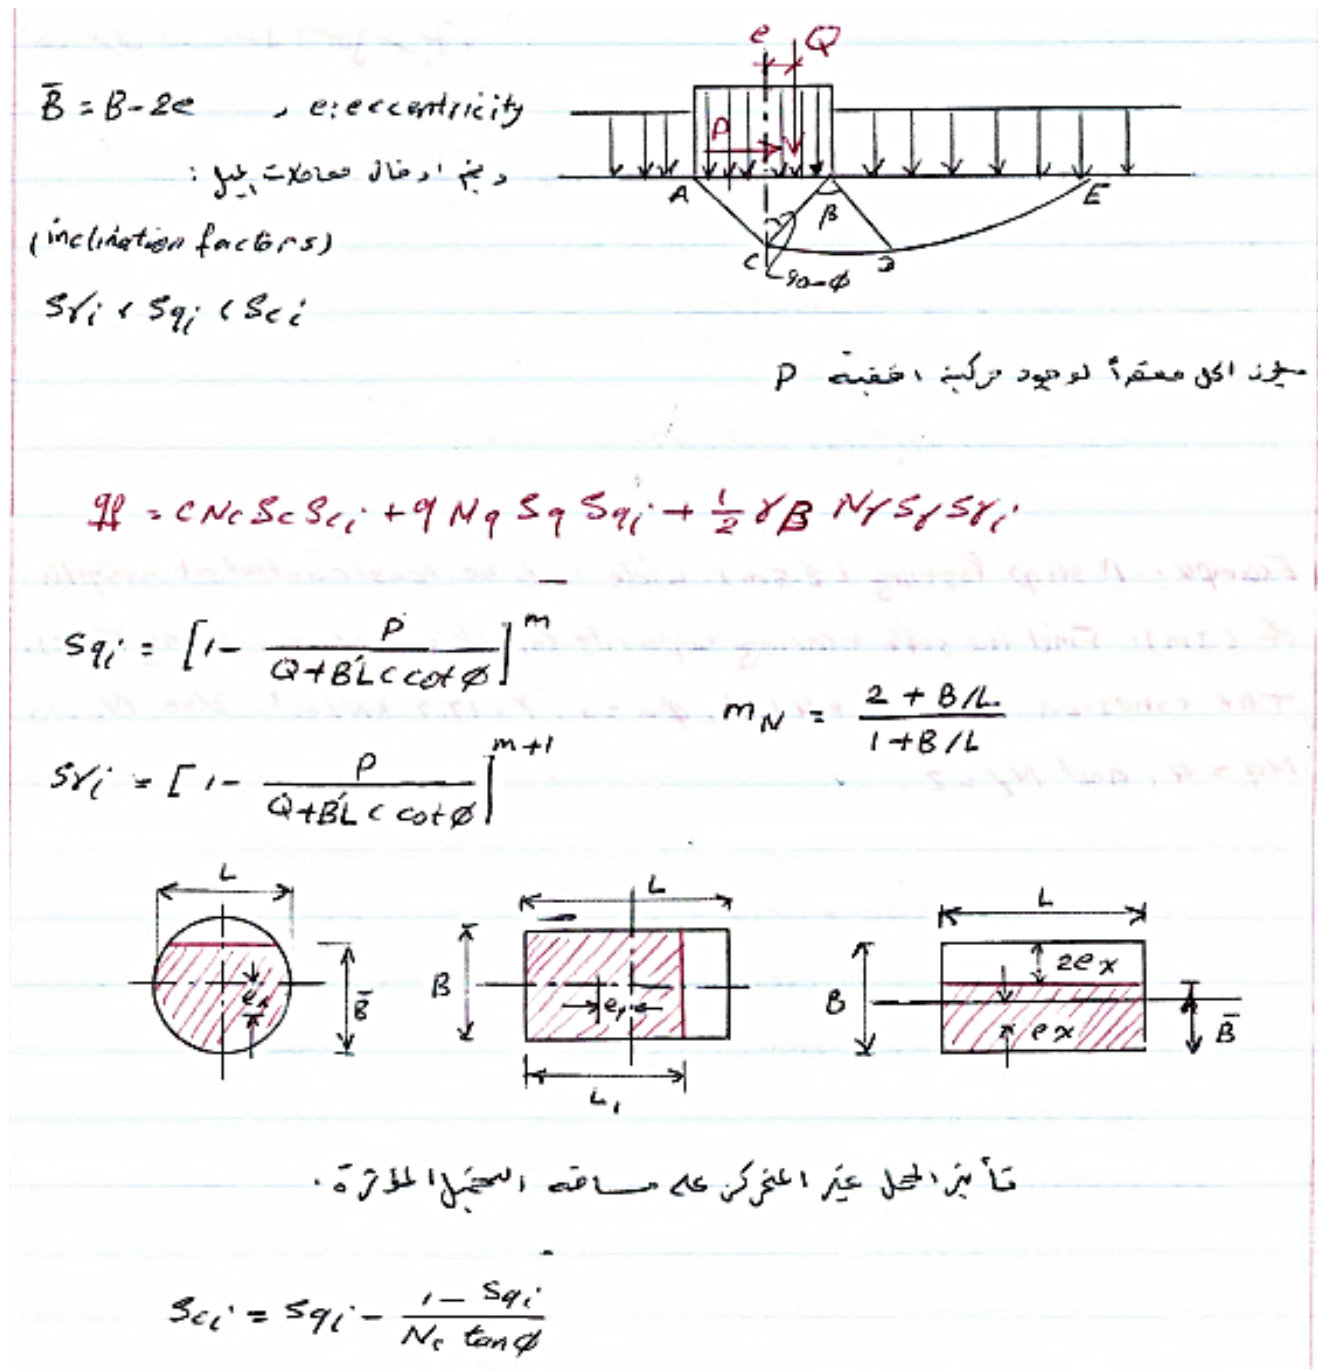 e Q
B̄ = B - 2e , e: eccentricity
P
ويتم ادخال معاملات الميل :
A E
β
(inclination factors)
C D
90-φ
Sγi , Sqi , Sci
لوجود مركبة افقية P
qf = c Nc Sc Sci + q Nq Sq Sqi + 1/2 γ B Nγ Sγ Sγi
Sqi = [1 - P / (Q + B'L c cot φ)]^m
mN = (2 + B/L) / (1 + B/L)
Sγi = [1 - P / (Q + B'L c cot φ)]^(m+1)
L L L
B B̄ B 2ex
ex B̄
L1
تأثير الحمل غير المتمركز على مساحة التحميل المؤثرة .
Sci = Sqi - (1 - Sqi) / (Nc tan φ)